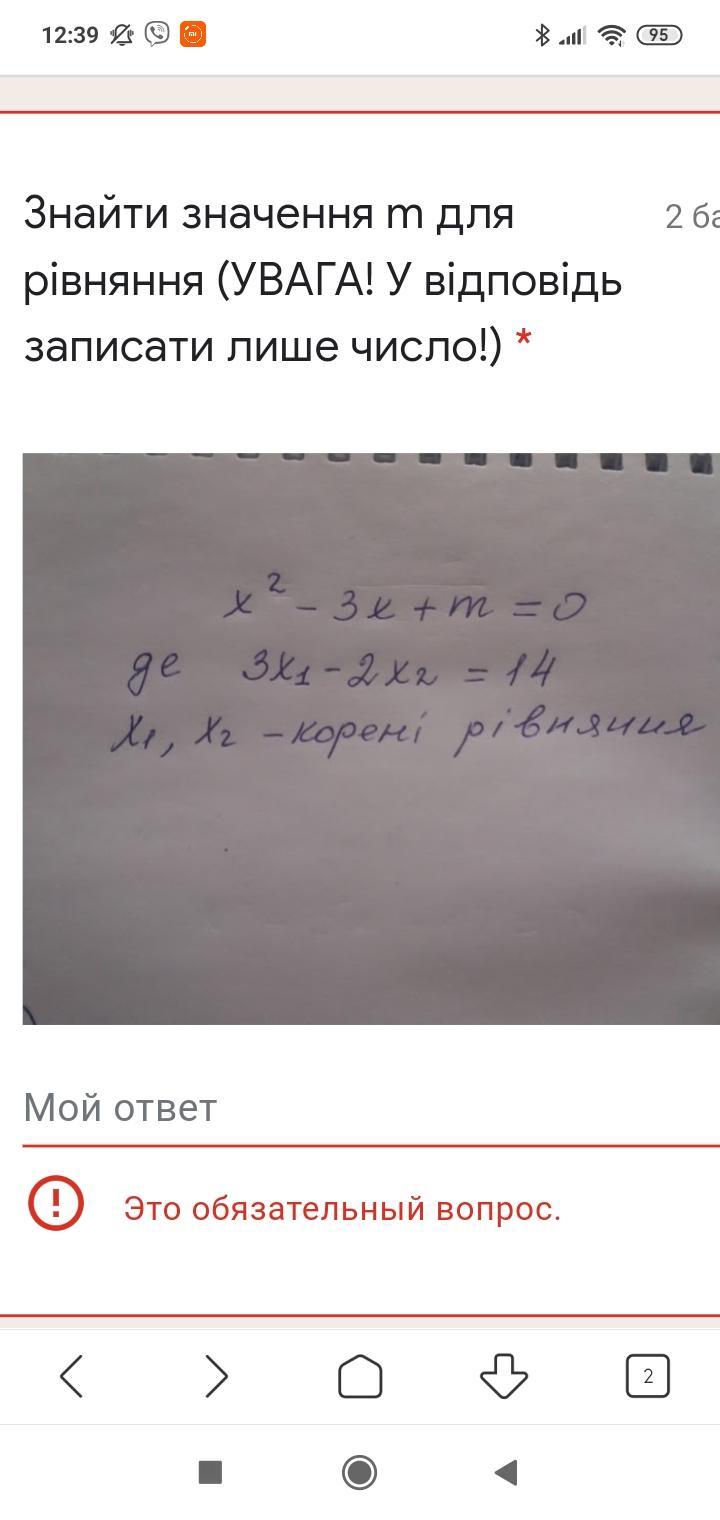 12:39
95
Знайти значення m для
2 ба
рівняння (УВАГА! У відповідь
записати лише число!) *
x² - 3x + m = 0
де 3x₁ - 2x₂ = 14
x₁, x₂ - корені рівняння
Мой ответ
Это обязательный вопрос.
2